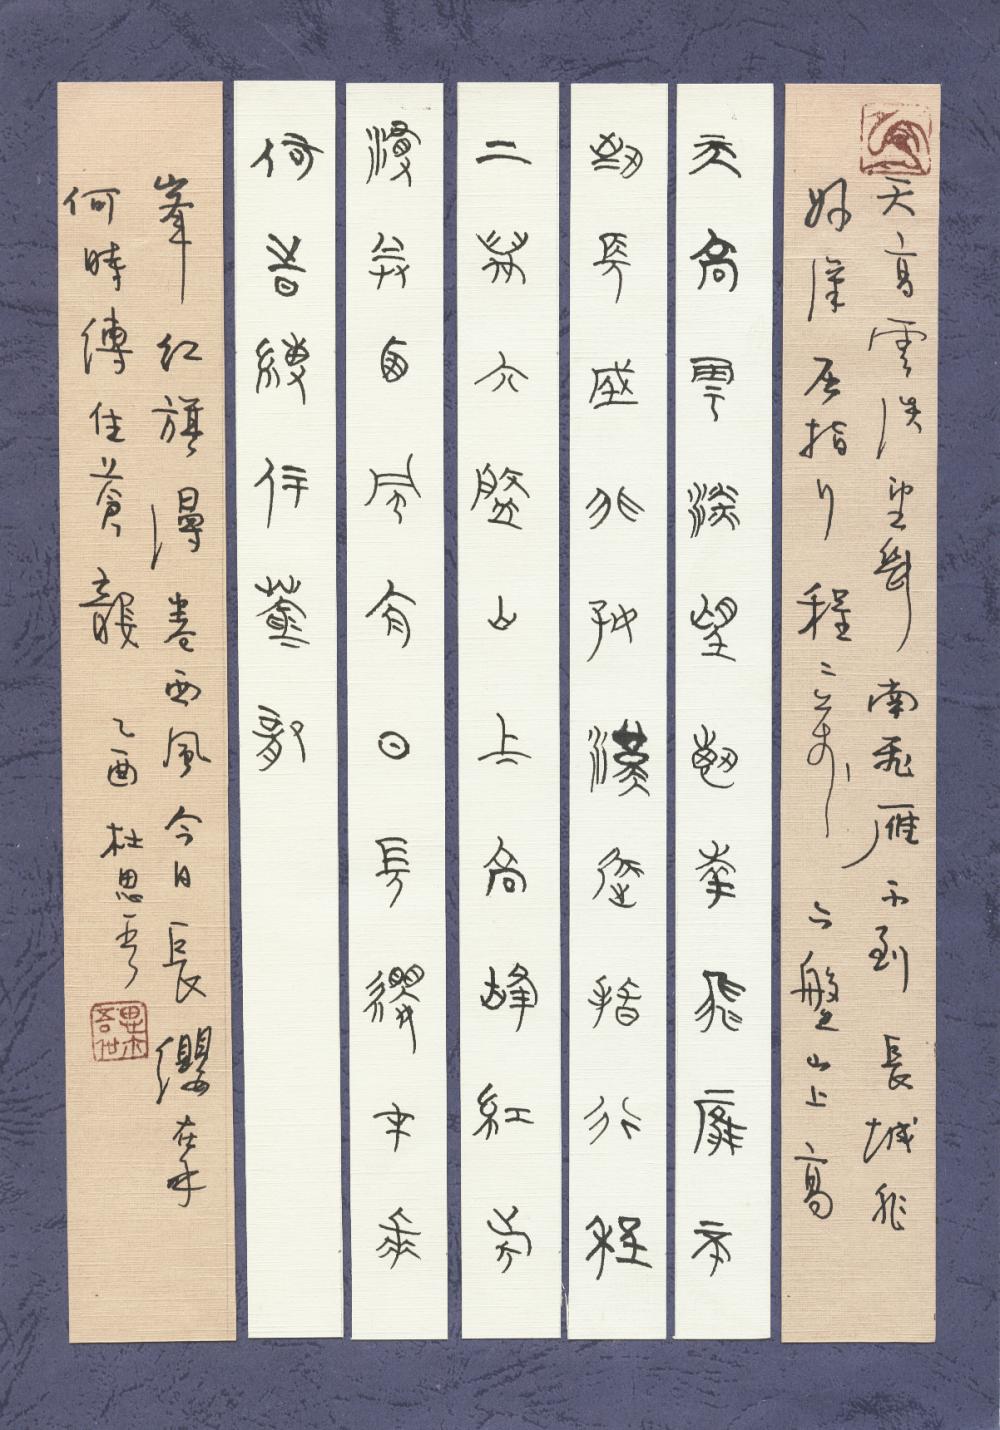 天高雲淡望斷南飛雁不到長城非
好漢屈指行程二萬六盤山上高
天高雲淡望斷南飛雁不
到長城非好漢屈指行程
二萬六盤山上高峰紅旗
漫卷西風今日長纓在手
何時縛住蒼龍
峯紅旗漫卷西風今日長纓在手
何時縛住蒼龍 乙酉 杜思